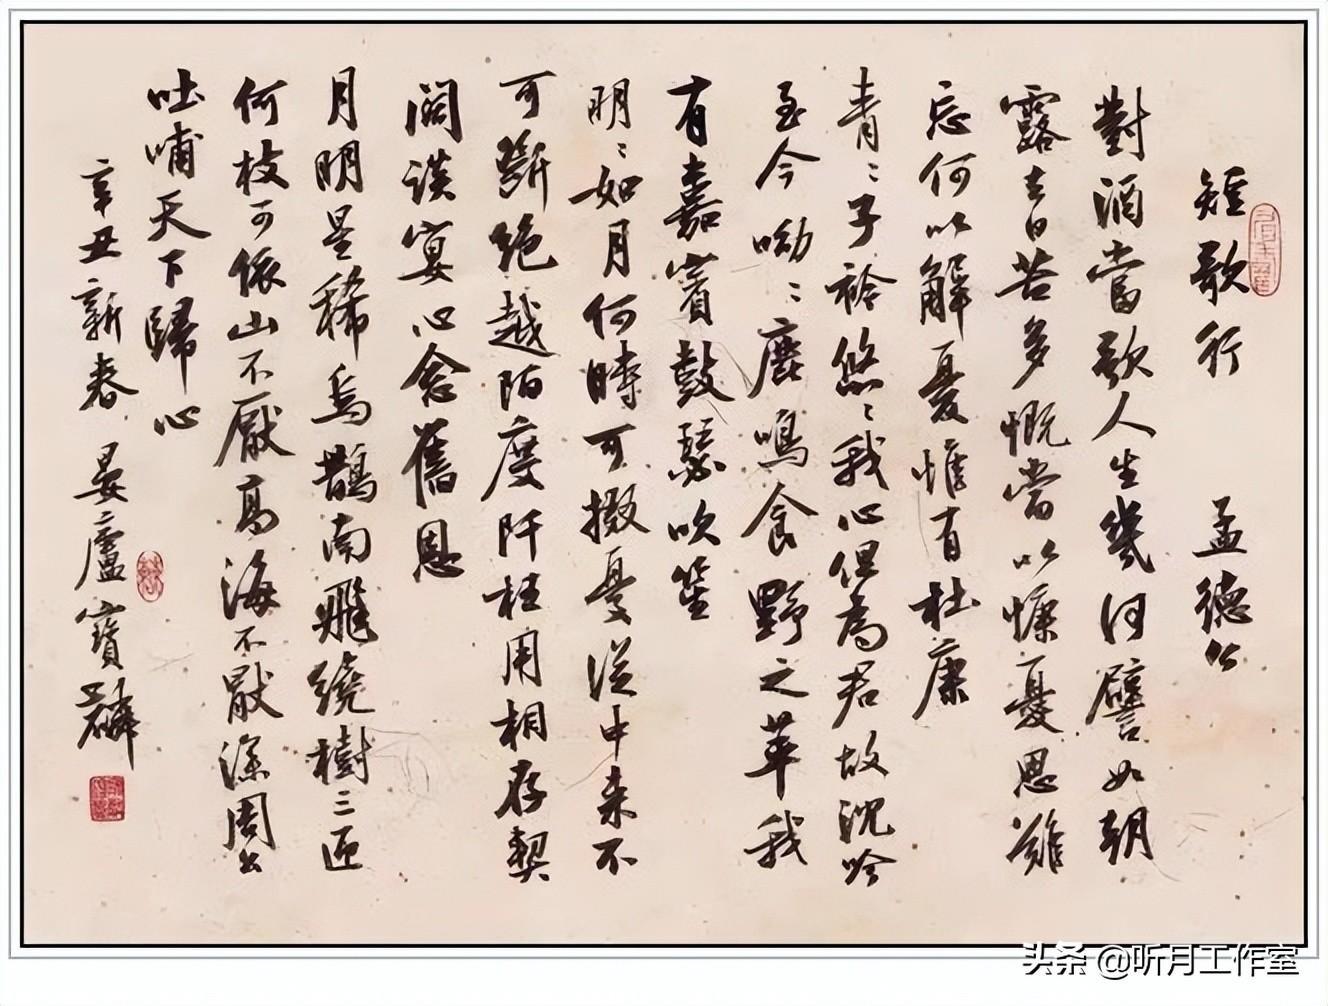 短歌行 孟德公
對酒當歌人生幾何譬如朝
露去日苦多慨當以慷憂思難
忘何以解憂惟有杜康
青〻子衿悠〻我心但為君故沈吟
至今呦〻鹿鳴食野之苹我
有嘉賓鼓瑟吹笙
明〻如月何時可掇憂從中来不
可斷絶越陌度阡枉用相存契
闊談宴心念舊恩
月明星稀烏鵲南飛繞樹三匝
何枝可依山不厭高海不厭深周公
吐哺天下歸心
辛丑新春 晏廬寶麟
头条 @听月工作室